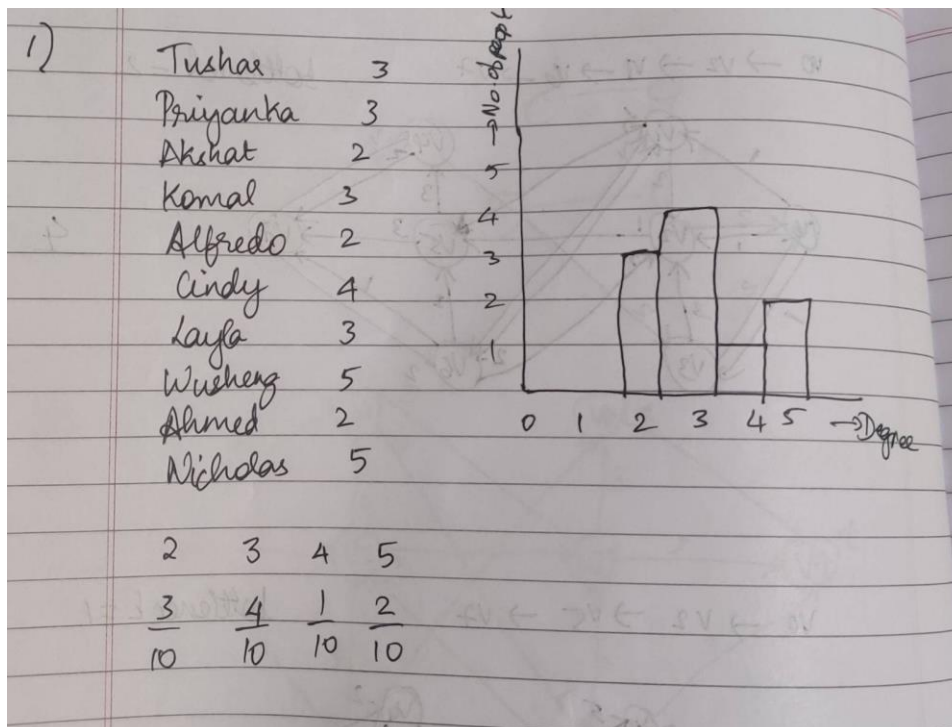 1)
Tushar 3
Priyanka 3
Akshat 2
Komal 3
Alfredo 2
Cindy 4
Layla 3
Wusheng 5
Ahmed 2
Nicholas 5
→No. of people
5
4
3
2
1
0 1 2 3 4 5 →Degree
2 3 4 5
3/10 4/10 1/10 2/10